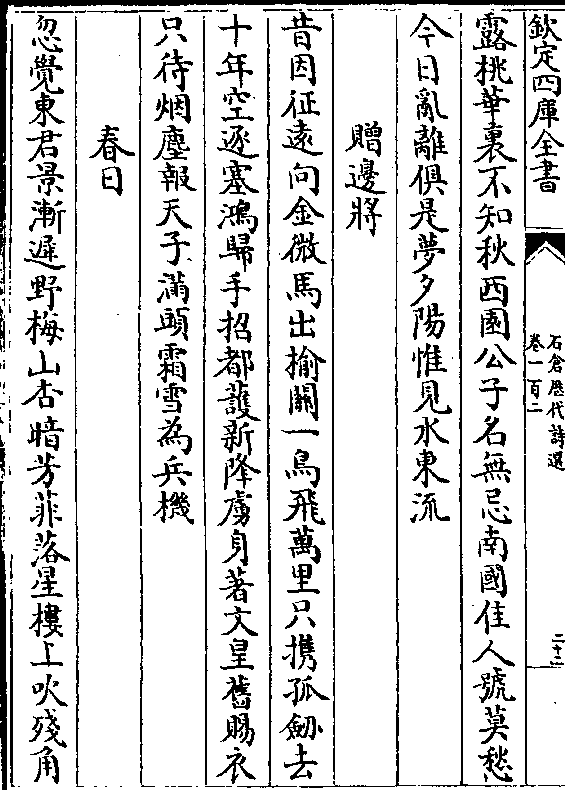 欽定四庫全書
石倉歷代詩選
卷一百二
二十二
露桃華裏不知秋西園公子名無忌南國佳人號莫愁
今日亂離俱是夢夕陽惟見水東流
贈邊將
昔因征遠向金微馬出揄關一鳥飛萬里只攜孤劒去
十年空逐塞鴻歸手招都䕶新降虜身著文皇舊賜衣
只待烟塵報天子滿頭霜雪為兵機
春日
忽覺東君景漸遲野梅山杏暗芳菲落星樓上吹殘角